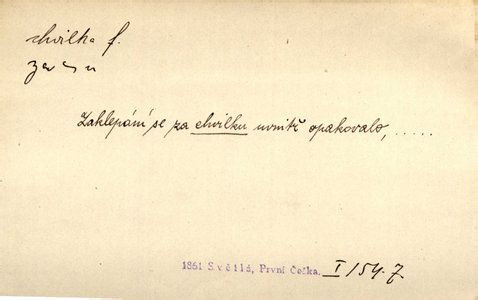 chvilka f.
Zaklepání se za chvilku uvnitř opakovalo, .....
1861 Světlá, První Češka. I/154.7.